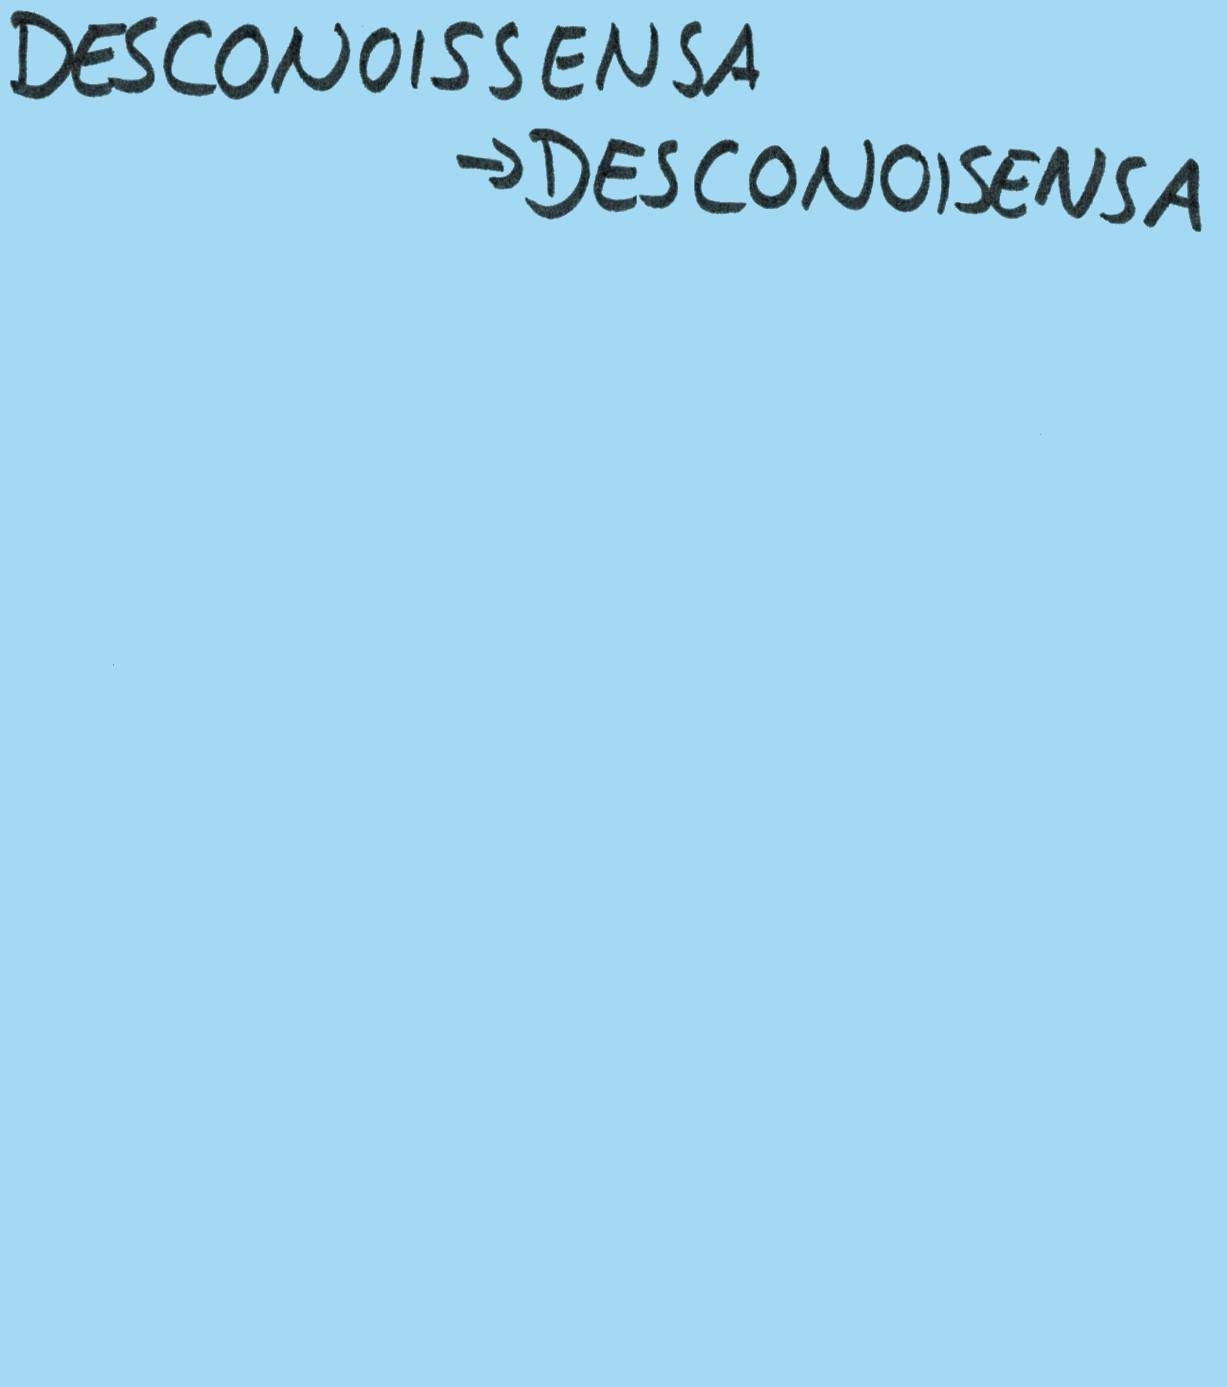 DESCONOISSENSA
→DESCONOISENSA